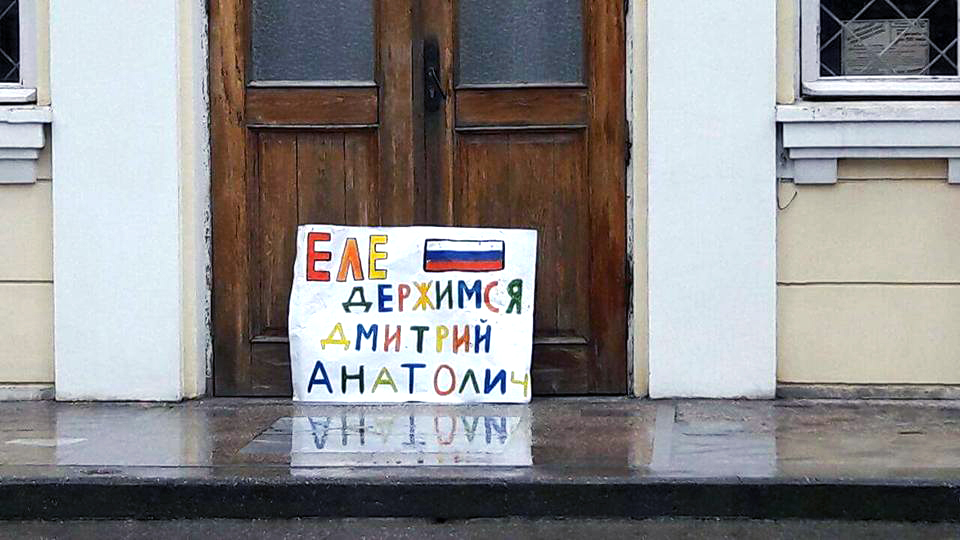 ЕЛЕ
ДЕРЖИМСЯ
ДМИТРИЙ
АНАТОЛИЧ